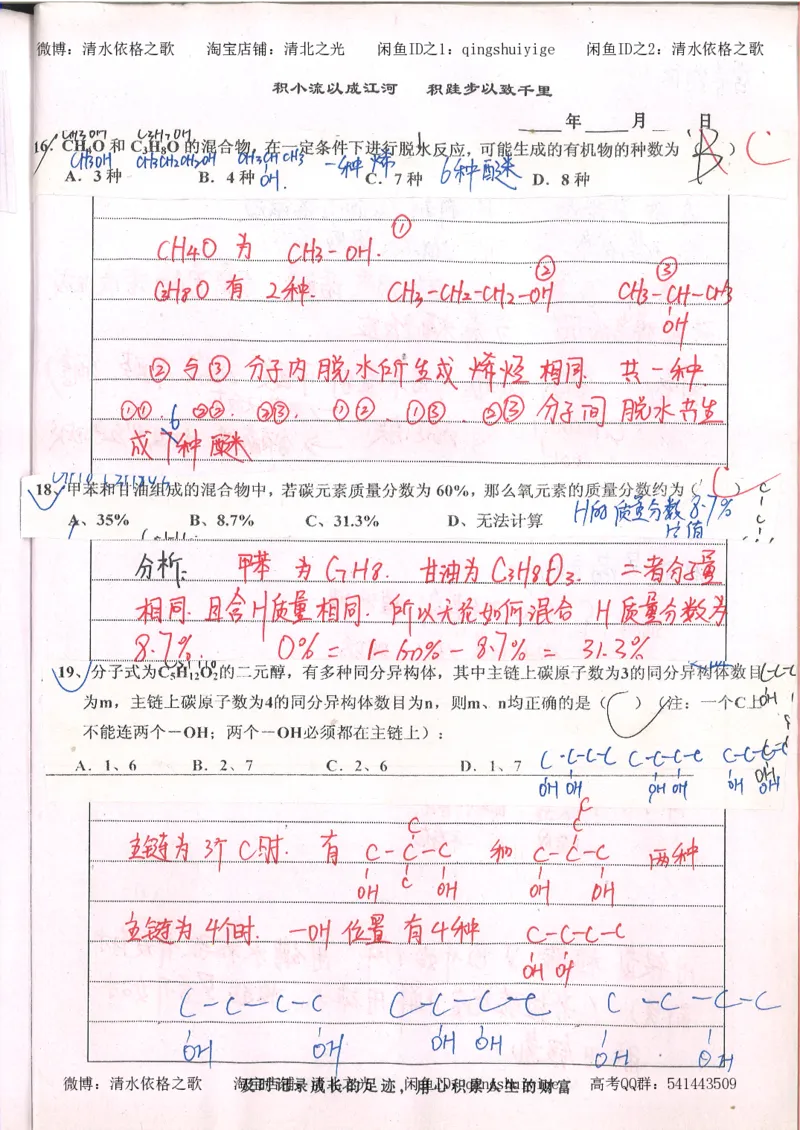 微博：清水依格之歌 淘宝店铺：清北之光 闲鱼ID之1：qingshuiyige 闲鱼ID之2：清水依格之歌
积小流以成江河 积跬步以致千里
年 月 日
CH3OH C3H7OH
16. CH4O 和 C3H8O 的混合物，在一定条件下进行脱水反应，可能生成的有机物的种数为（B） C
CH3OH CH3CH2CH2OH CH3CHCH3 一种烯 6种醚
OH
A．3 种 B．4 种 C．7 种 D．8 种
①
CH4O 为 CH3-OH.
② ③
C3H8O 有 2种. CH3-CH2-CH2-OH CH3-CH-CH3
OH
②与③ 分子内脱水所生成 烯烃 相同. 共一种.
①①. ②②. ②③. ①②. ①③. ②③ 分子间脱水共生
6
成7种醚
18、甲苯和甘油组成的混合物中，若碳元素质量分数为 60%，那么氧元素的质量分数约为（C）
H的质量分数 8.7%
A、35% B、8.7% C、31.3% D、无法计算
分析: 甲苯 为 C7H8. 甘油为 C3H8O3. 二者分子量
相同. 且含H质量相同. 所以无论如何混合 H质量分数为
8.7%. O% = 1-60%-8.7% = 31.3%
19、分子式为C5H12O2的二元醇，有多种同分异构体，其中主链上碳原子数为3的同分异构体数目
为m，主链上碳原子数为4的同分异构体数目为n，则m、n均正确的是（ ）（注：一个C上
不能连两个－OH；两个－OH必须都在主链上）：
A．1、6 B．2、7 C．2、6 D．1、7
C-C-C-C C-C-C-C C-C-C-C
OH OH OH OH OH OH
C
C C
主链为3个C时. 有 C-C-C 和 C-C-C 两种
OH C OH OH OH
主链为4个时. -OH 位置有4种 C-C-C-C
OH OH
C-C-C-C C-C-C-C C-C-C-C
OH OH OH OH OH OH
微博：清水依格之歌 淘宝店铺：清北之光 闲鱼ID：qingshuiyige 高考QQ群：541443509
及时记录成长的足迹，用心积累人生的财富